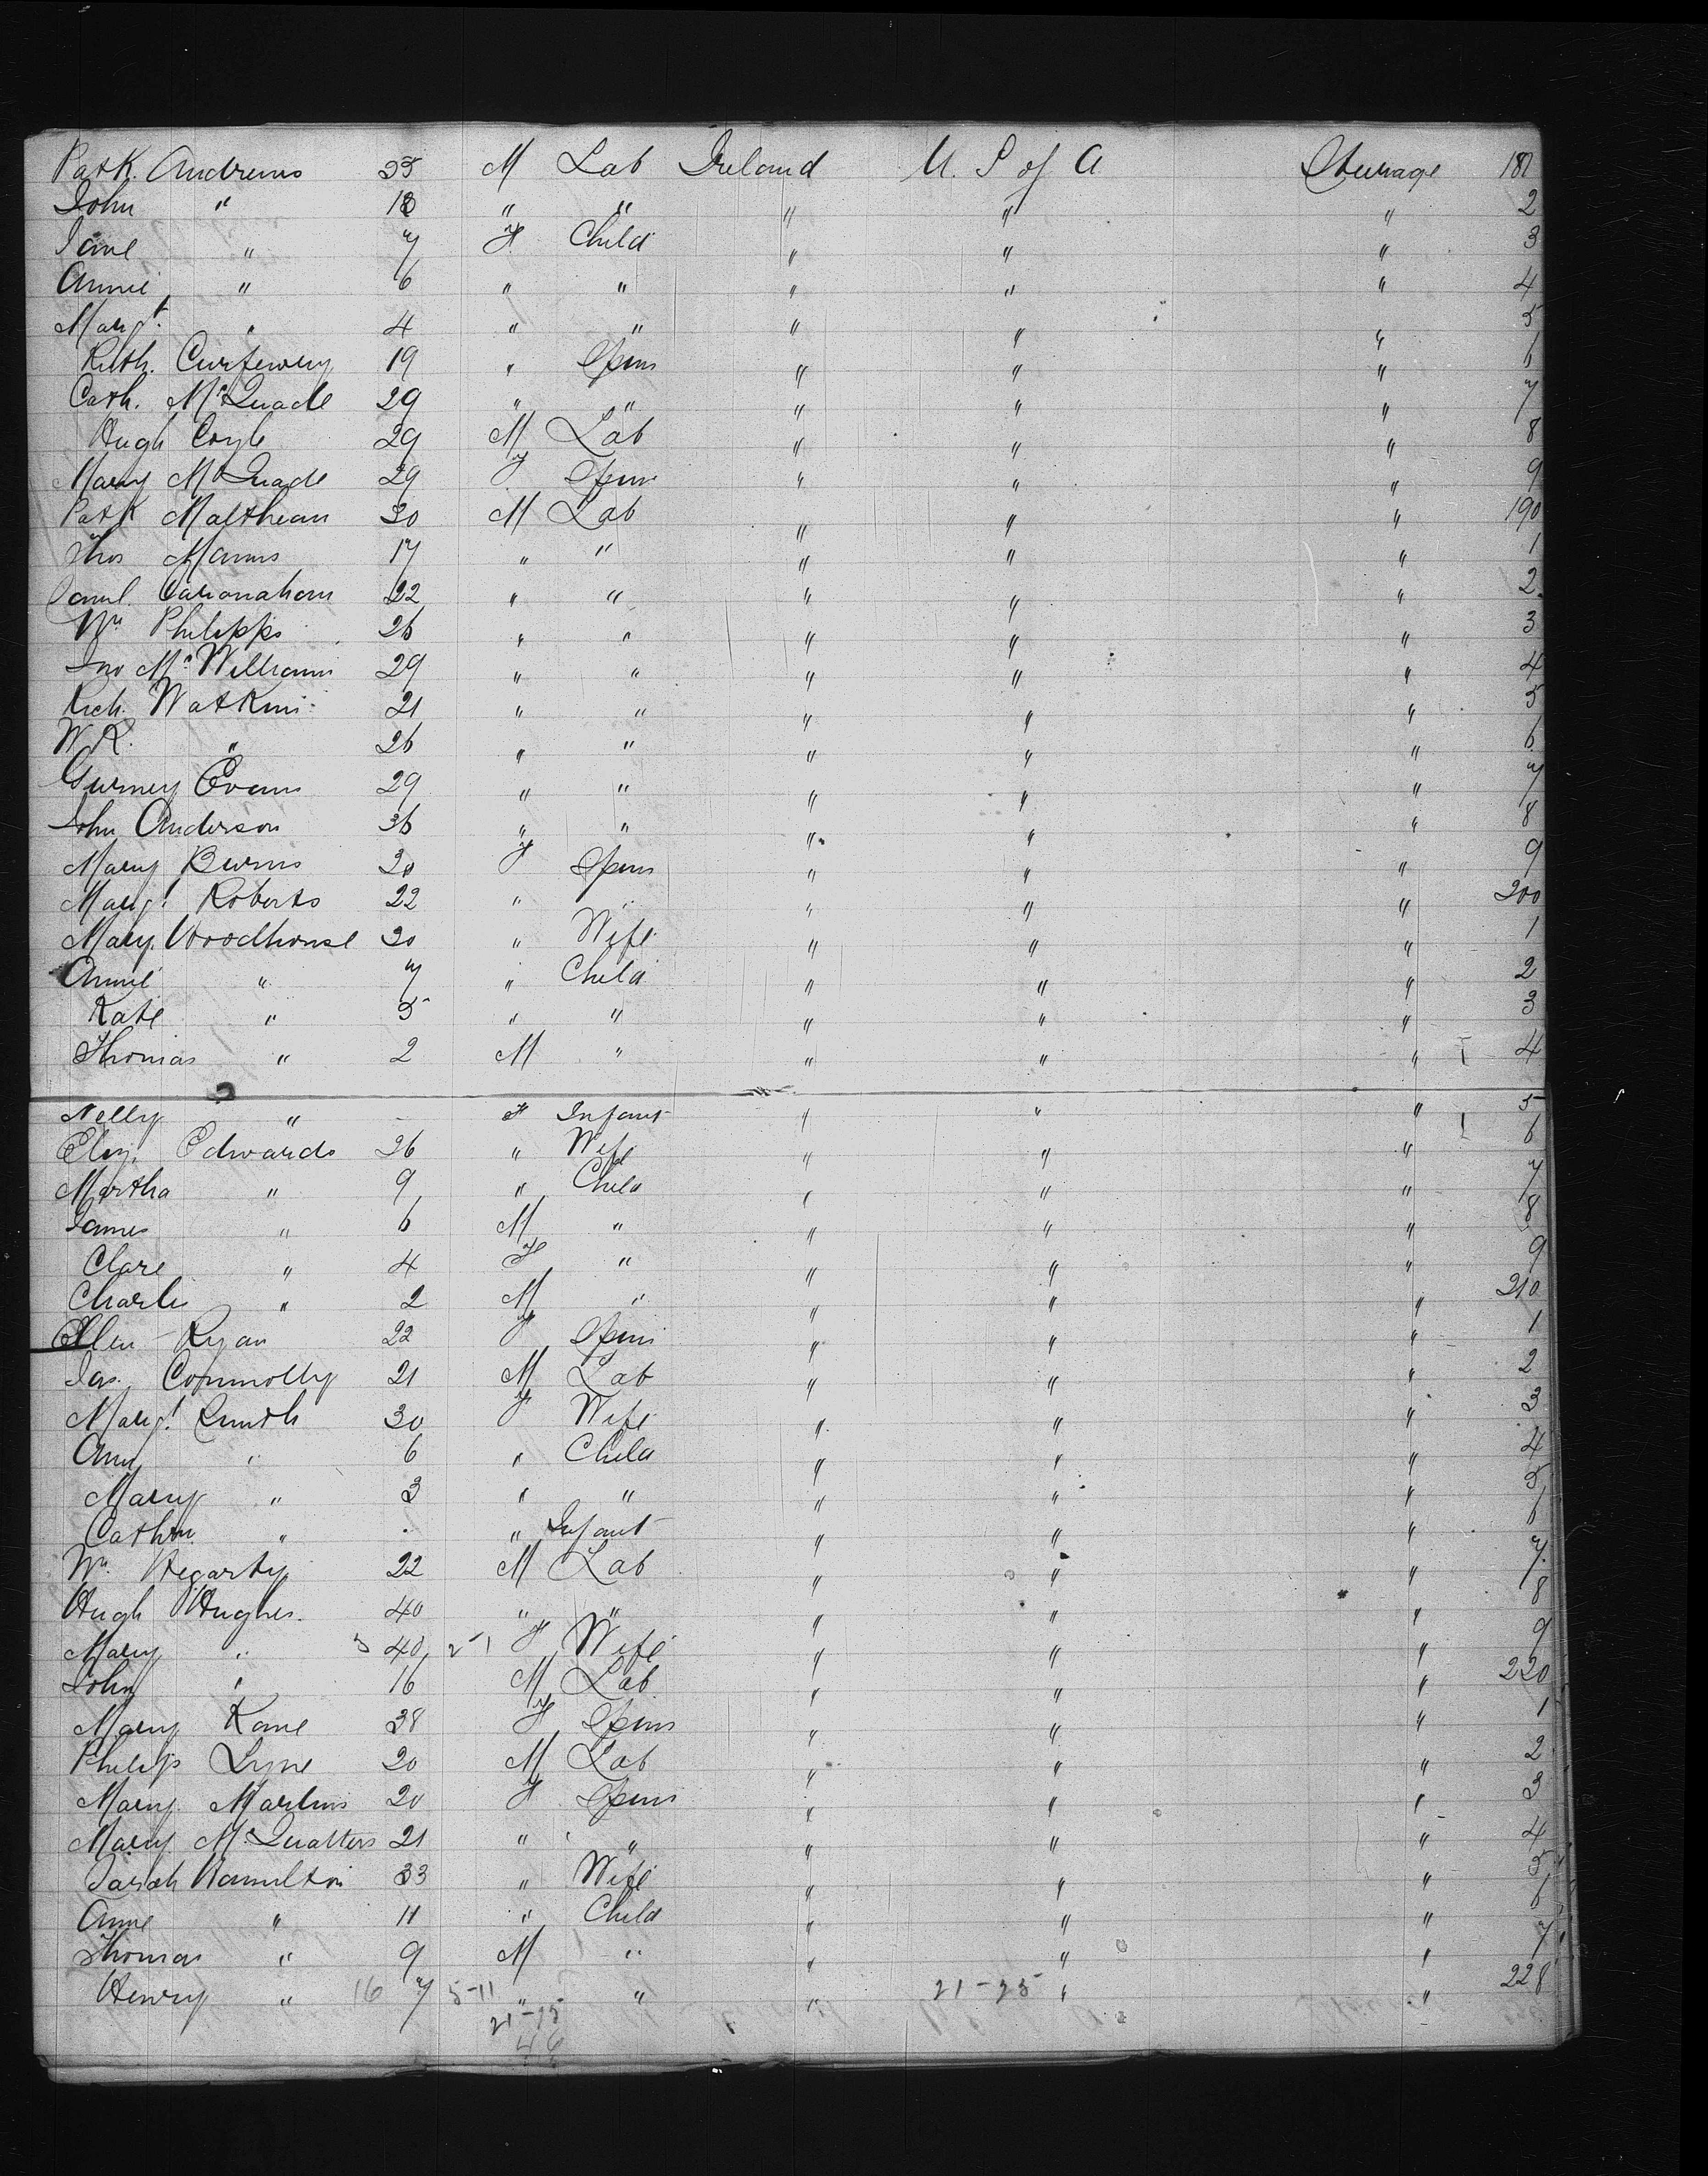 Patk. Andrews 35 M Lab Ireland U. S of A Steerage 181
John " 18 " " " " " 2
Jane " 7 F Child " " " 3
Annie " 6 " " " " " 4
Margt. " 4 " " " " " 5
Ruth. 19 " Spins " " " 6
Cath. McQuade 29 " " " " " 7
Hugh Coyle 29 M Lab " " " 8
Mary McQuade 29 F Spins " " " 9
Patk 30 M Lab " " " 190
Thos Manus 17 " " " " " 1
22 " " " " " 2
Wm Philipps 26 " " " " " 3
Jno McWilliams 29 " " " " " 4
Rich. Watkins 21 " " " " " 5
W. R. " 26 " " " " " 6
Gurney Evans 29 " " " " " 7
John Anderson 36 " " " " " 8
Mary Burns 30 F Spins " " " 9
Margt Roberts 22 " " " " " 200
Mary Woodhouse 30 " Wife " " " 1
Annie " 7 " Child " " " 2
Kate " 5 " " " " " 3
Thomas " 2 M " " " " 4
Nelly " - F Infant " " " 5
Eliz. Edwards 26 " Wife " " " 6
Martha " 9 " Child " " " 7
James " 6 M " " " " 8
Clare " 4 F " " " " 9
Charles " 2 M " " " " 210
Ellen Ryan 22 F Spins " " " 1
Jas. Connolly 21 M Lab " " " 2
Margt 30 F Wife " " " 3
Ann " 6 " Child " " " 4
Mary " 3 " " " " " 5
Cathn. " " Infant " " " 6
Wm. Hegarty 22 M Lab " " " 7
Hugh Hughes. 40 " " " " " 8
Mary " 40 F Wife " " " 9
John " 16 M Lab " " " 220
Mary Kane 38 F Spins " " " 1
Philip Lyne 20 M Lab " " " 2
Mary Martins 20 F Spins " " " 3
Mary McQuatters 21 " " " " " 4
Sarah Hamilton 33 " Wife " " " 5
Anne " 11 " Child " " " 6
Thomas " 9 M " " " " 7
Henry " 16 7 5-11 " " " 21-25 " " 228
21-25
46